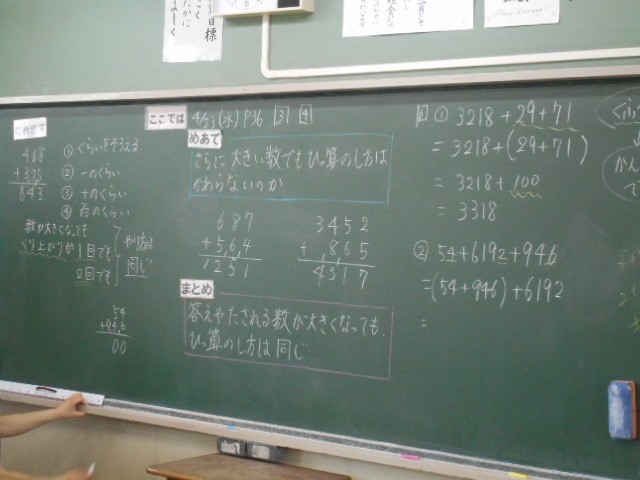 これまで
468
+375
843
① くらいをそろえる
② 一のくらい
③ 十のくらい
④ 百のくらい
数が大きくなっても
くり上がりが1回でも
2回でも
やり方は
同じ
54
+946
00
ここでは
4/23(水) P36 3 4
めあて
さらに大きい数でもひっ算のし方は
かわらないのか
687
+564
1251
3452
+865
4317
まとめ
答えやたされる数が大きくなっても、
ひっ算のし方は同じ
4 ① 3218+29+71
=3218+(29+71)
=3218+100
=3318
② 54+6192+946
=(54+946)+6192
=